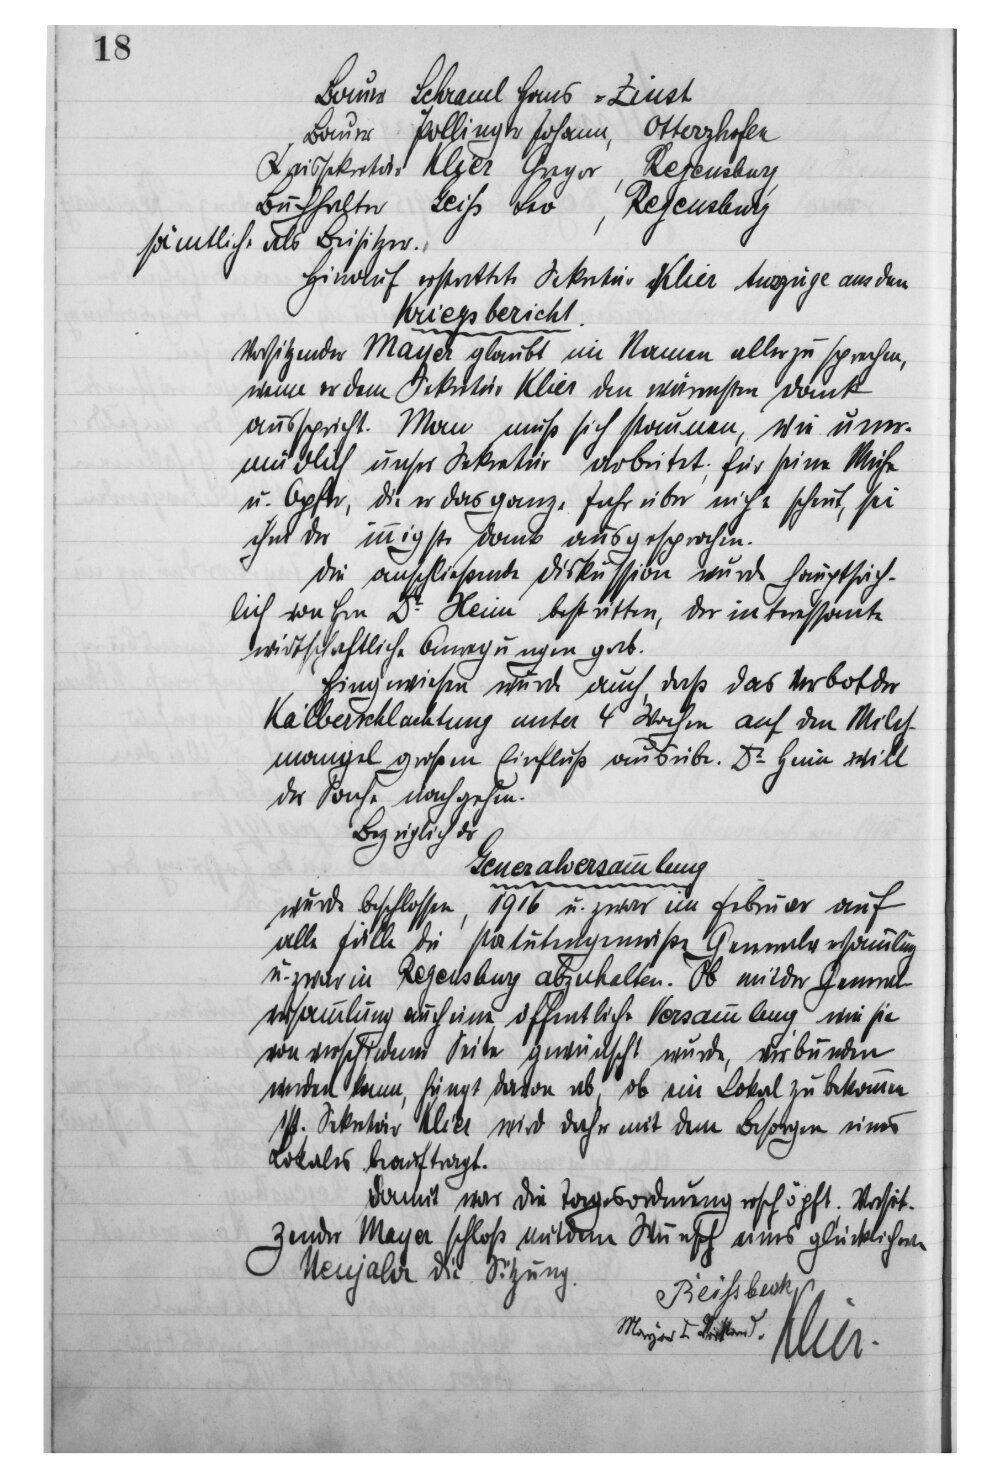 18
Bauer Schraml Hans - Zinst
Bauer Pollinger Johann, Otterzhofen
Kreissekretär Klier Gregor, Regensburg
Buchhalter Geiß Leo, Regensburg
sämtliche als Beisitzer.
Hierauf erstattete Sekretär Klier Auszüge aus dem
Kriegsbericht.
Vorsitzender Mayer glaubt im Namen aller zu sprechen,
wenn er dem Sekretär Klier den wärmsten Dank
ausspricht. Man muß sich staunen, wie uner-
müdlich unser Sekretär arbeitet; für seine Mühe
u. Opfer, die er das ganze Jahr über nicht scheut, sei
ihm der innigste Dank ausgesprochen.
Die anschließende Diskussion wurde hauptsäch-
lich von Hrn Dr. Heim bestritten, der interessante
wirtschaftliche Anregungen gab.
Hingewiesen wurde auch, daß das Verbot der
Kälberschlachtung unter 4 Wochen auf den Milch-
mangel großen Einfluß ausübe. Dr. Heim will
der Sache nachgehen.
Bezüglich der
Generalversam̄lung
wurde beschlossen, 1916 u. zwar im Februar auf
alle Fälle die statutengemäße Generalversam̄lung
u. zwar in Regensburg abzuhalten. Ob mit der General-
versam̄lung auch eine öffentliche Versam̄lung, wie sie
von verschiedener Seite gewünscht wurde, verbunden
werden kann, hängt davon ab, ob ein Lokal zu bekom̄en
ist. Sekretär Klier wird daher mit dem Besorgen eines
Lokales beauftragt.
Damit war die Tagesordnung erschöpft. Vorsit-
zender Mayer schloß mit dem Wunsch eines glücklichen
Neujahr die Sitzung.
Reissbeck
Mayer I. Vorstand. Klier.